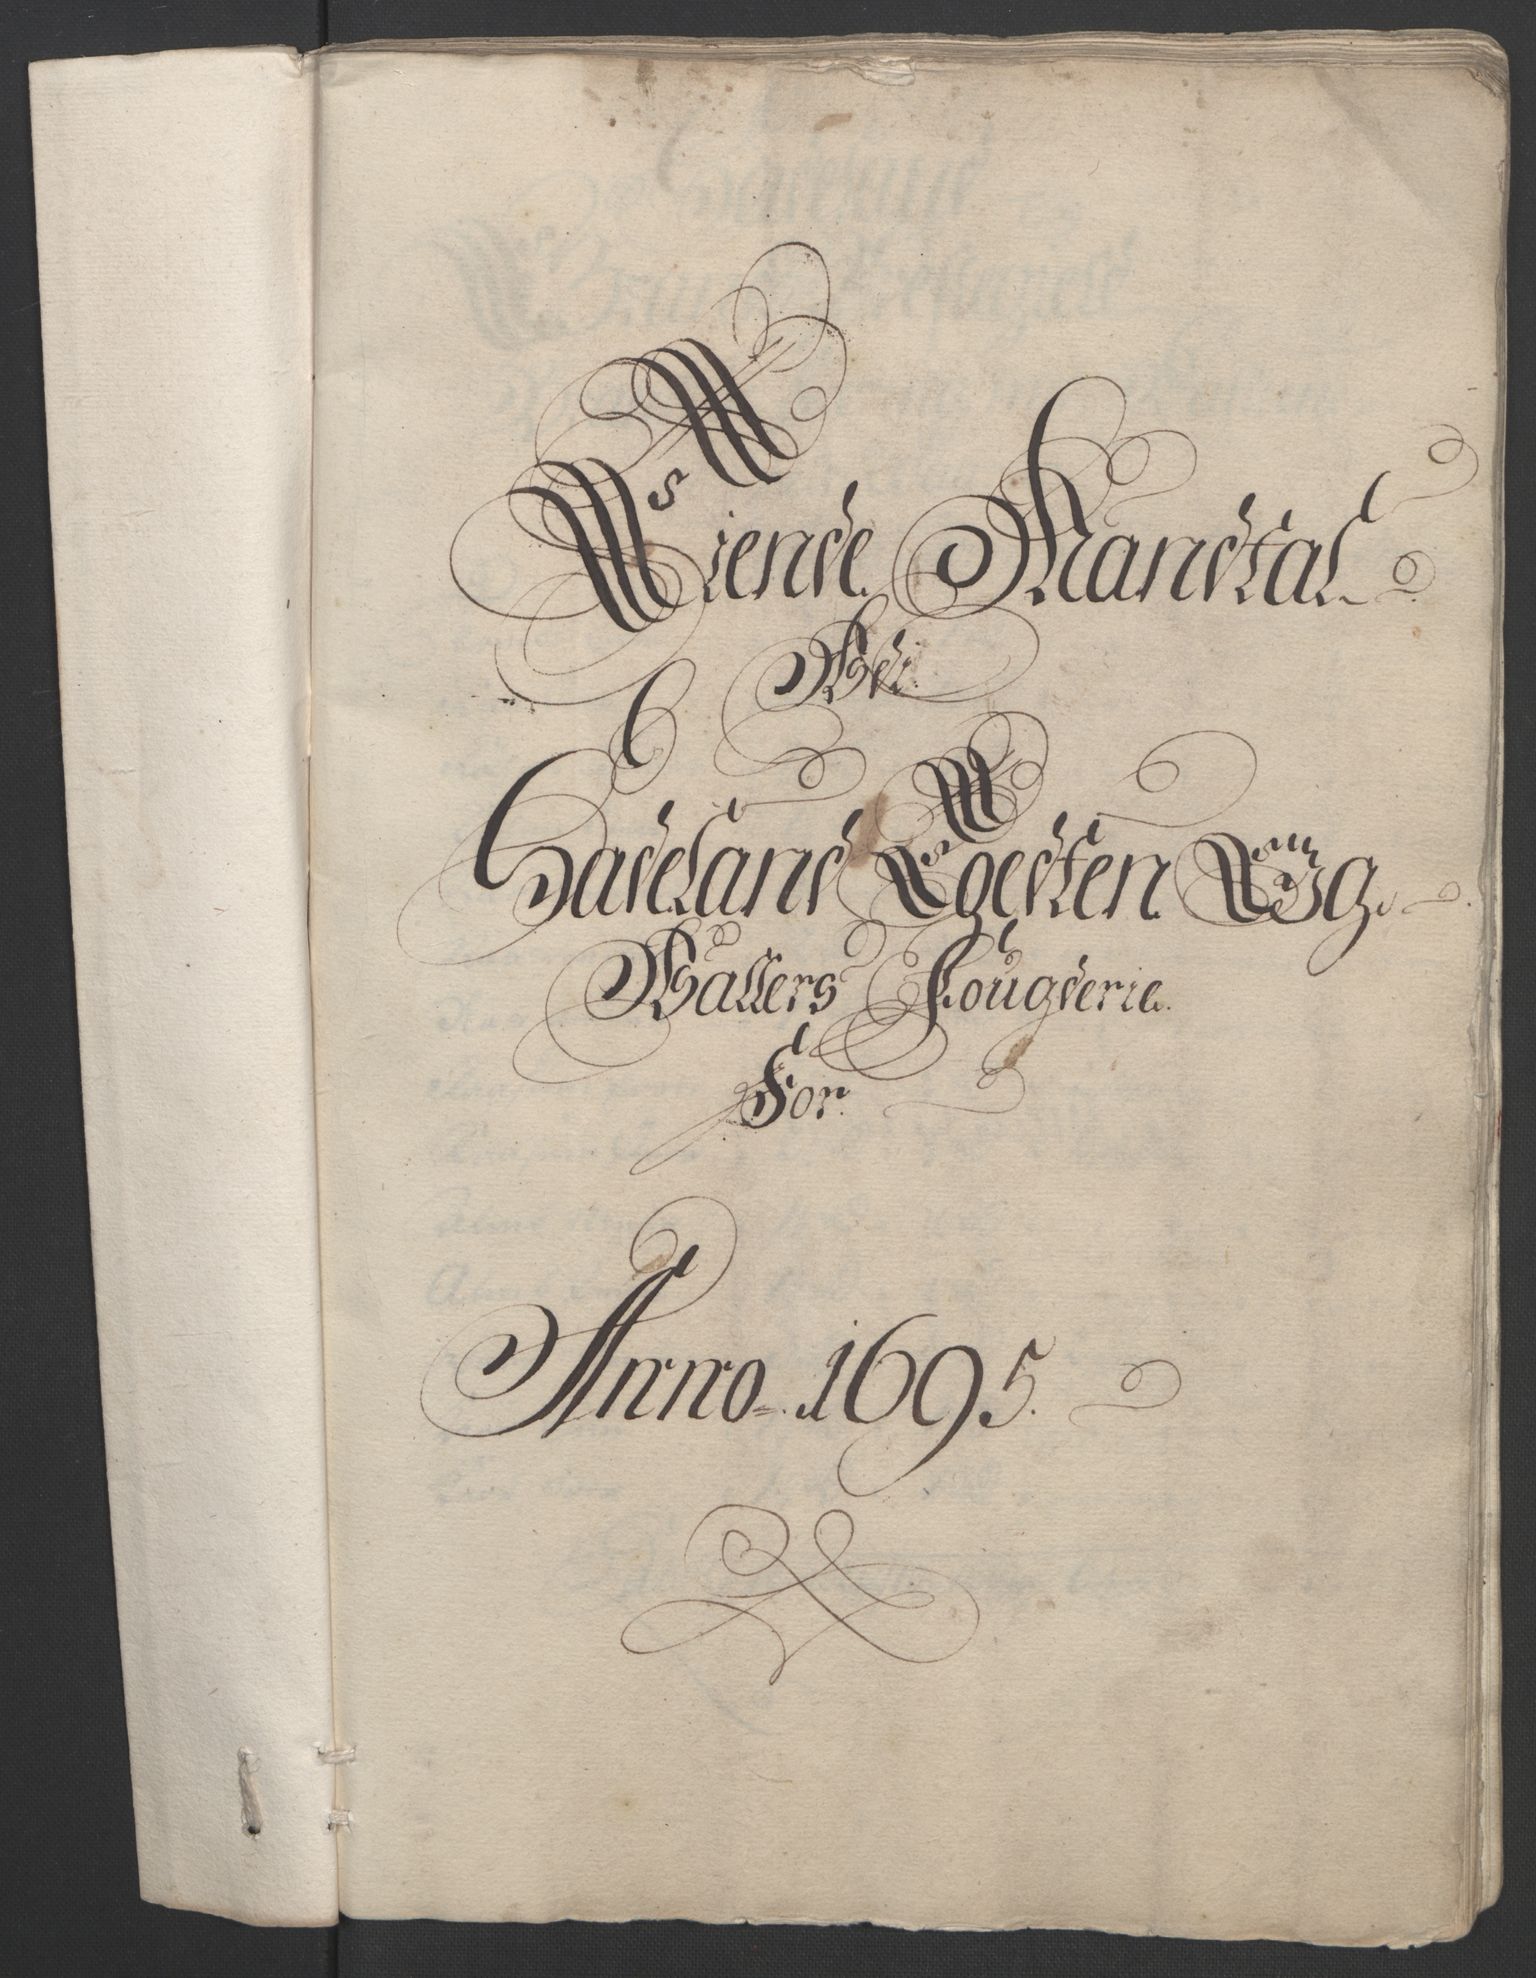 Tiende Mandtal
Ved
Hadeland Toedten Og
Valders Fougderie
For
Anno 1695